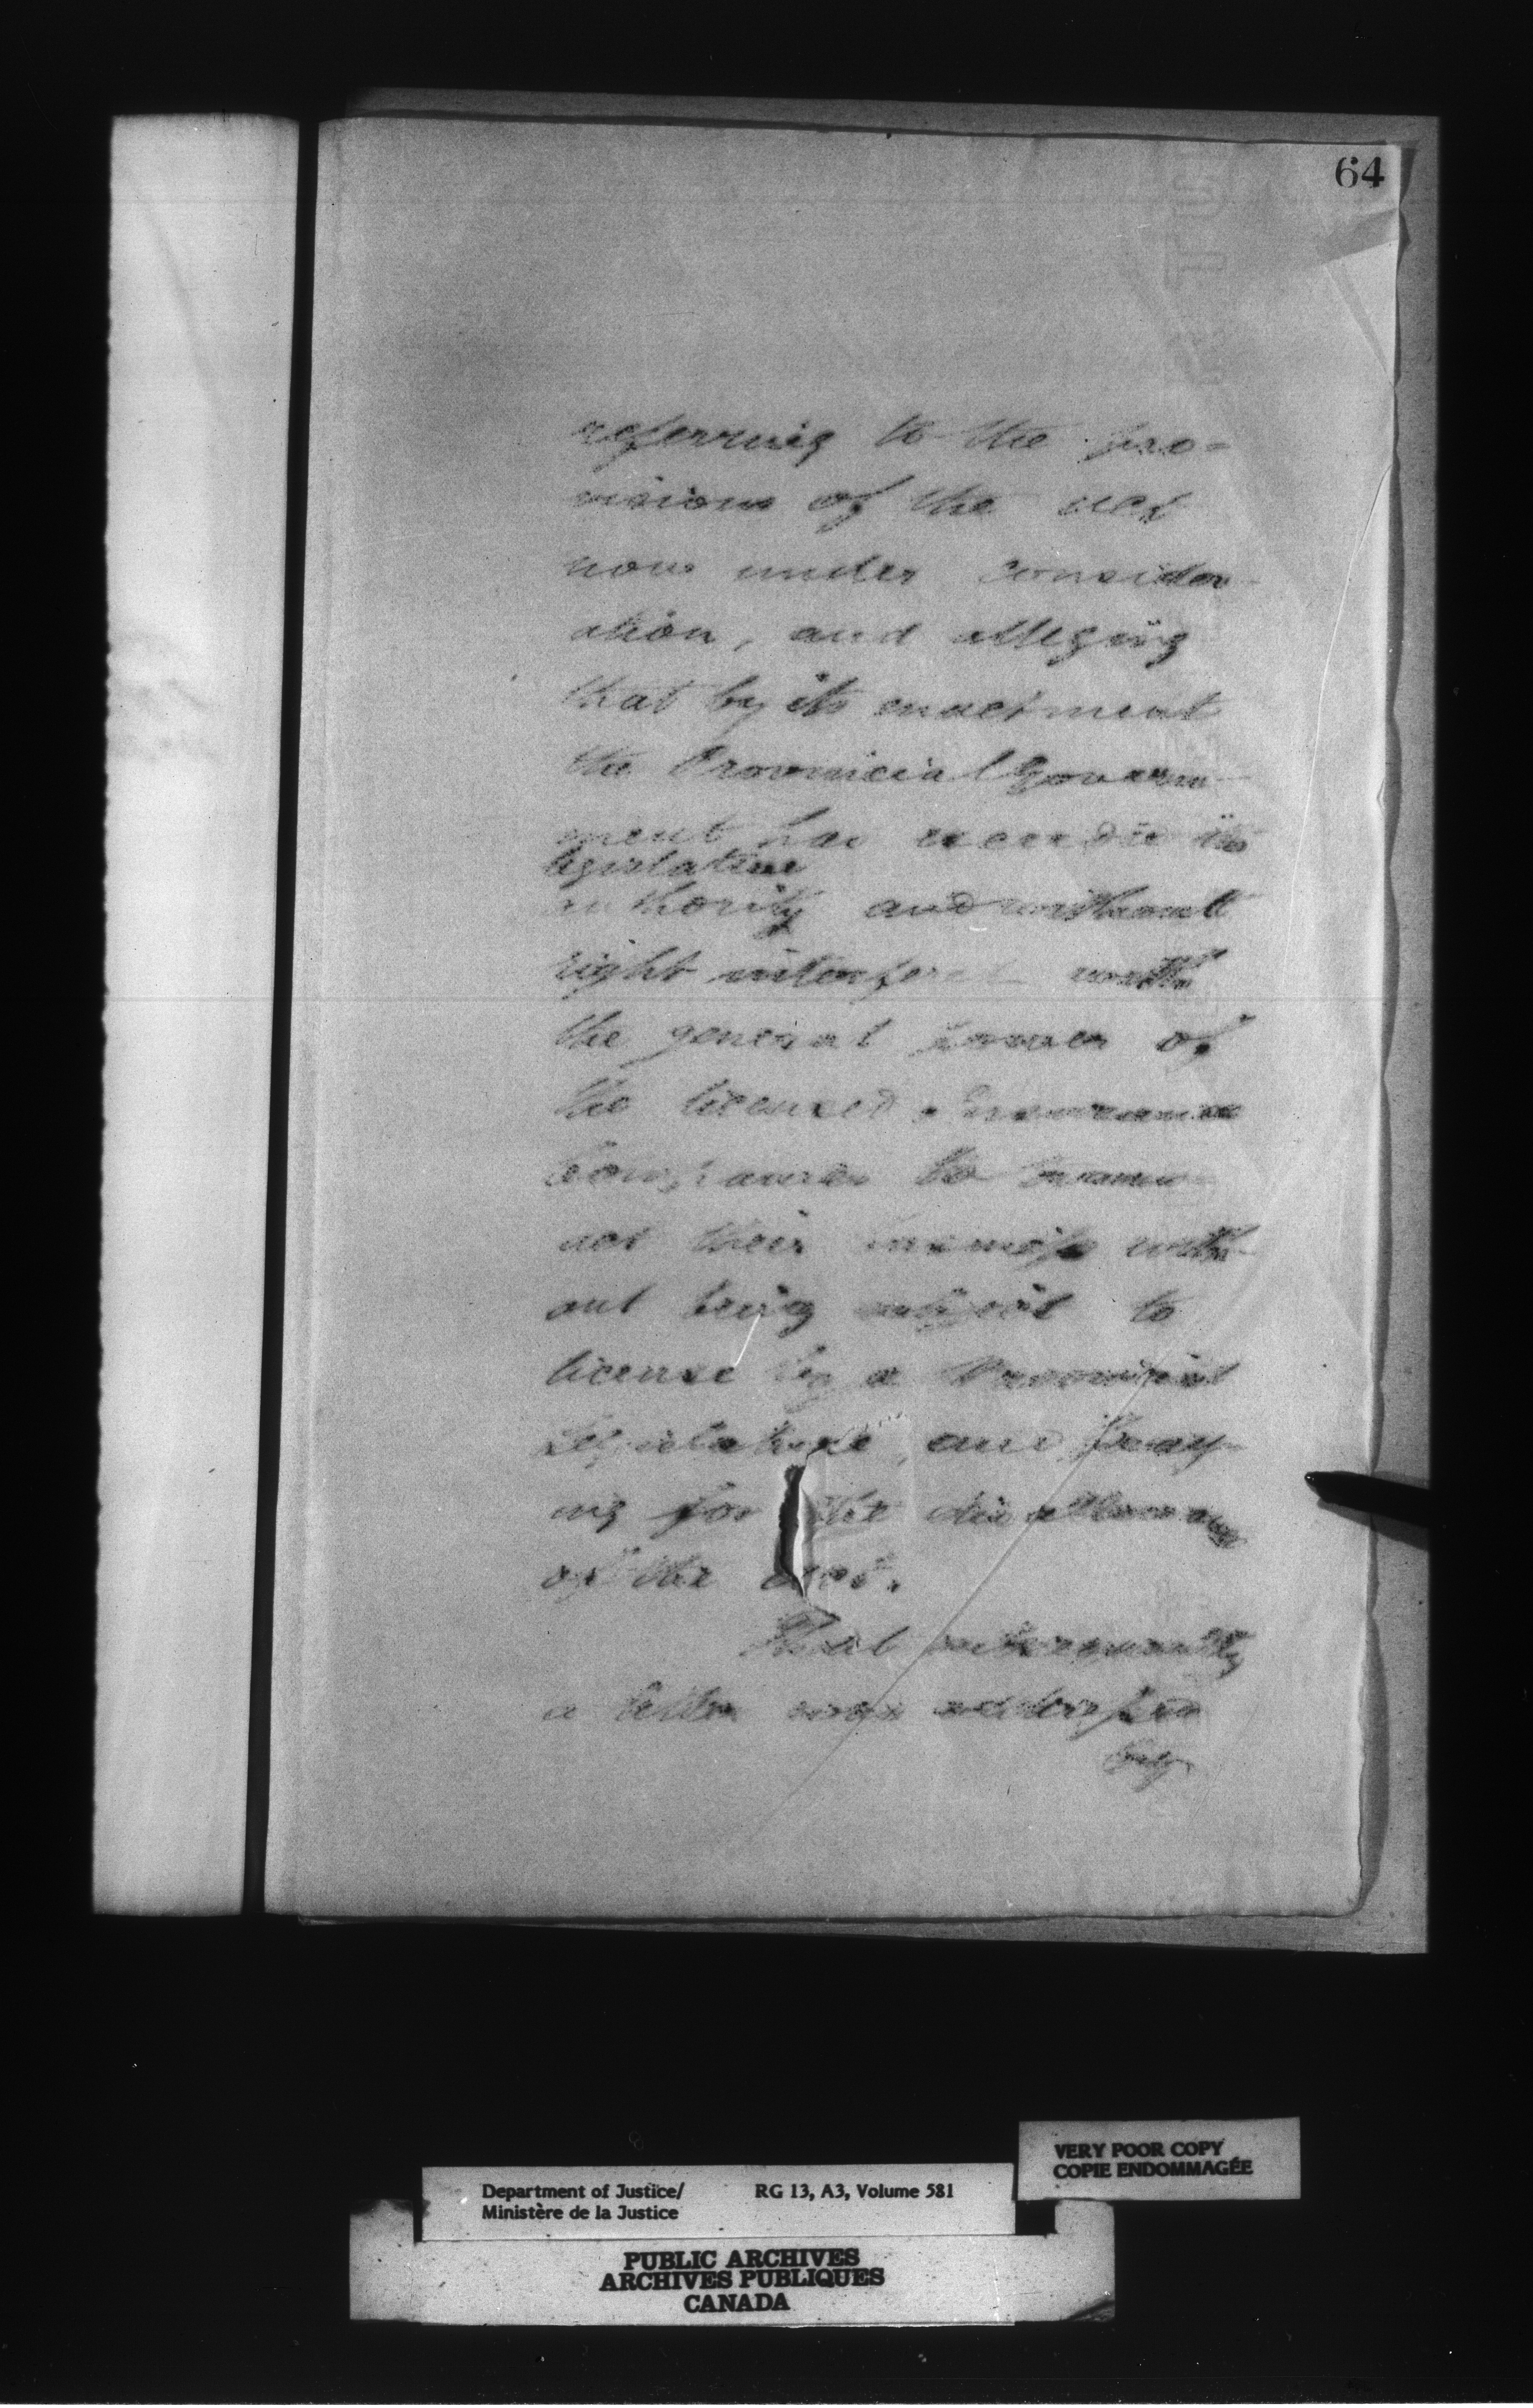 64
referring to the pro-
visions of the act
now under consider-
ation, and alleging
that by its enactment
the Provincial Govern-
ment has exceeded its
legislative
authority and without
right interfered with
the general power of
the licensed Insurance
Companies to trans-
act their business with-
out being subject to
license by a Provincial
Legislature, and pray-
ing for the disallowance
of the act.
That subsequently
a letter was addressed
by
VERY POOR COPY
COPIE ENDOMMAGÉE
Department of Justice/ RG 13, A3, Volume 581
Ministère de la Justice
PUBLIC ARCHIVES
ARCHIVES PUBLIQUES
CANADA